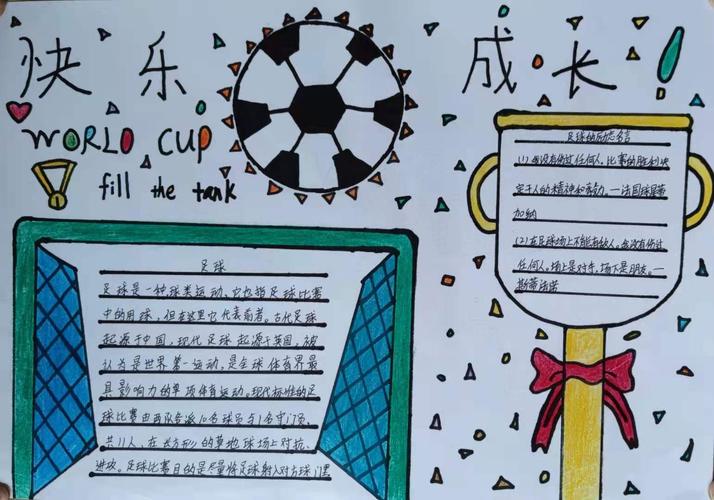 快乐
成长!
WORLD CUP
fill the tank
足球
足球是一种球类运动、它也指足球比赛
中的用球，但在这里它代表前者。古代足球
起源于中国，现代足球起源于英国，被
认为是世界第一运动，是全球体育界最
具影响力的单项体育运动。现代标准的足
球比赛由两队各派10名球员与1名守门员，
共11人，在长方形的草地球场上对抗、
进攻。足球比赛目的是尽量将足球射入对方球门里
足球的励志名言
(1)我没有伤过任何人，比赛的胜利决
定于人的精神和努力。一法国球星
加纳
(2)在足球场上不能有敌人。我没有伤过
任何人。场上是对手，场下是朋友。一
斯蒂法诺